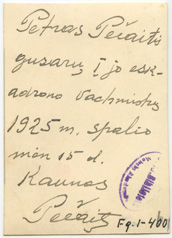 Petras Pečaitis
gusarų I jo esk-
adrono vachmistras
1925 m. spalio
mėn 15 d.
Kaunas
Pečaitis
Fg.1-400